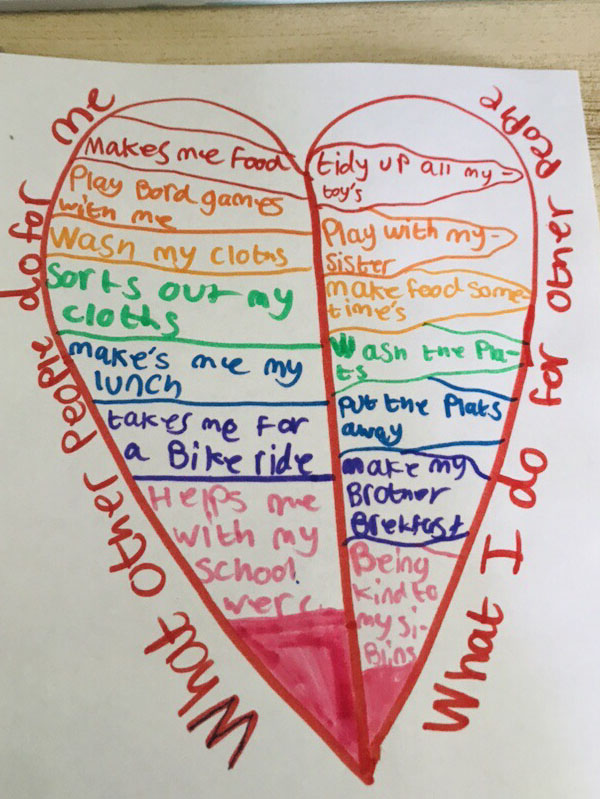 What other people do for me
Makes me food
Play Bord games
with me
Wash my cloths
Sorts out my
cloths
make's me my
lunch
takes me for
a Bike ride
Helps me
with my
school
werc
What I do for other people
tidy up all my
toy's
Play with my
Sister
make food some-
time's
Wash the Pla-
ts
put the Plats
away
make my
Brother
Brekfast
Being
kind to
my si-
Bins